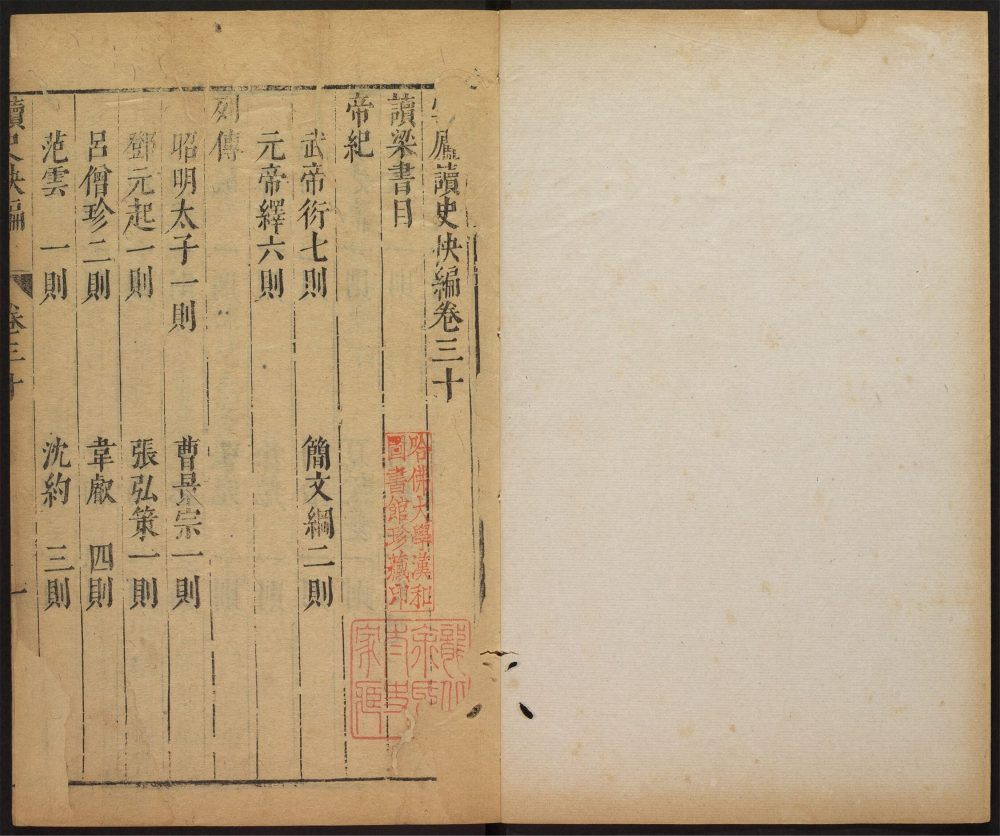 鷹讀史快編卷三十
讀梁書目
帝紀
武帝衍七則 簡文綱二則
元帝繹六則
列傳
昭明太子一則 曹景宗一則
鄧元起一則 張弘策一則
呂僧珍二則 韋叡 四則
范雲 一則 沈約 三則
讀史快編 卷三十 一
哈佛大學漢和
圖書館珍藏印